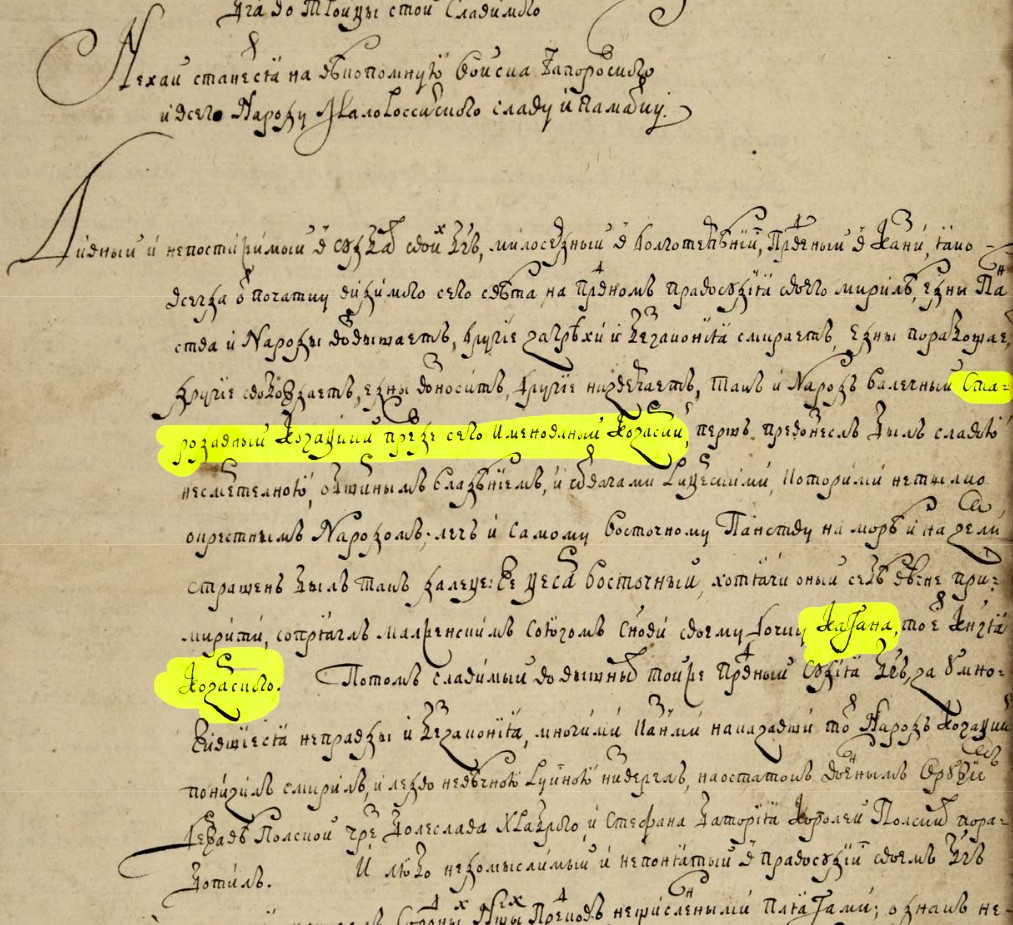 Бга до Тройцы стой Славимого
Нехай станется на вѣкопомную Войска Запорозского
и всего Народу Малороссийского славу и памятку.
Дивный и непостижимый в судбах своих Бгъ, милосердный в долготерпѣнии, Праведный в Казни, яко
всегда от початку видимого сего свѣта, на праведномъ правосудия своего мирилѣ, едны Пан
ства и Народы возвышаетъ, другие за грѣхи и беззакония смиряетъ, едны порабощает,
другие свобождаетъ, едны возноситъ, другие низвергаетъ, такъ и Народъ валечный Ста-
родавный Козацкий прежде сего Именованый Козарский, першъ превознеслъ былъ славою
несмертелною, обширнымъ владѣниемъ, и отвагами Рыцерскими, которими не тылко
окрестнымъ Народомъ, лечъ и самому Восточному Панству на морѣ и на земли
страшенъ былъ такъ далеце: же цесар Восточный, хотячи оный себѣ вѣчне при-
мирити, сопряглъ малженскимъ союзомъ Сынови своему дочку Кагана, то е Князя
Козарского. Потомъ славимый во вышныхъ тойже праведный Судия Бгъ, за умно-
жившиеся неправды и беззакония, многими казнми наказавши то Народъ Козацкий
понизилъ смирилъ, и ледво невѣчною руиною низверглъ, наостатокъ военнымъ Оружием
державѣ Полской чрез Болеслава Храброго, и Стефана Батория Королей Полских пора-
ботилъ. И любо неизмыслимый и непонятый в правосудии своемъ Бгъ
Стороны предковъ несчисленными плягами; однакъ не-